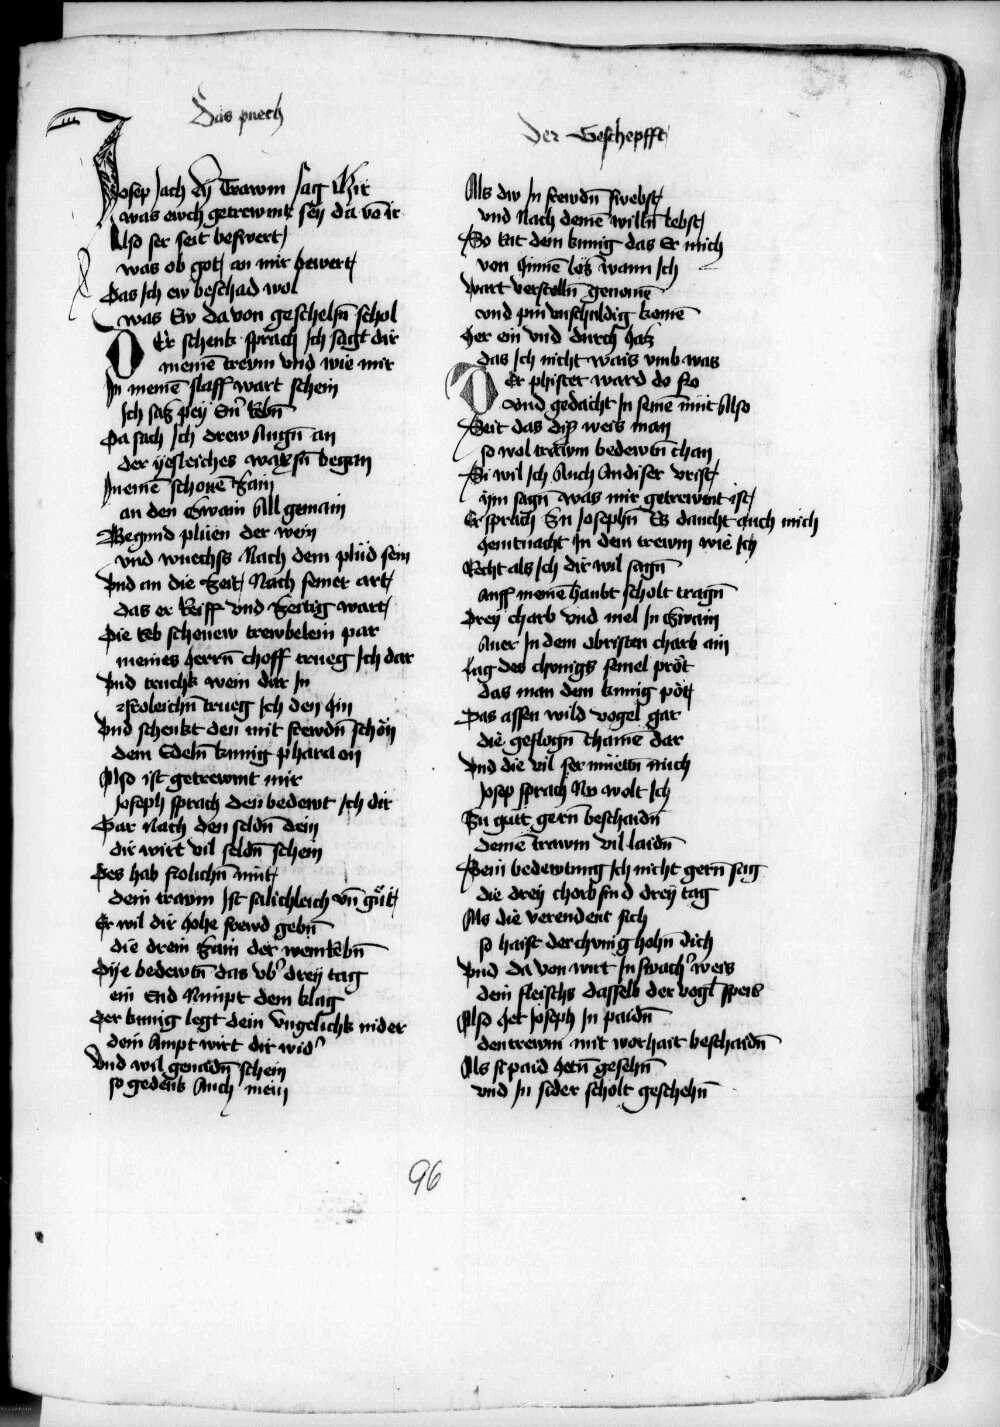 Das puech
Der Geschepfft
Josep sach dy Trawm sag Mir
was ewch getrewmt sey da vō ir
Also ser seit beswert
was ob got an mir bewert
Das Ich ew beschad wol
was Ew da von geschehn̄ schol
Der schenk sprach Ich sagt dir
meinē trewm vnd wie mir
In meinē slaff wart schein
Ich sas pey Ein̄ Rebn̄
Da sach Ich drew Augn̄ an
der yesleiches waxsn̄ began
In einē schonē Zain
an den Swain All gemain
Begund plüen der wein
vnd wuechss Nach dem plüd sein
Vnd an die Zeit Nach seiner art
das er Reiff vnd Zeitig wart
Die Reb schenew trewbelein par
meines herrn̄ choff trueg Ich dar
Vnd truckh wein dar In
Froleichn̄ trueg Ich den hin
Vnd schenkt den mit frewdn̄ schon
dem Edeln̄ kunig pharaon
Also ist getrewmt mir
Joseph sprach den bedewt Ich dir
Gar Nach den seldn̄ dein
dir wirt vil seldn̄ schein
Des hab frolichn̄ mut
dein trawm Ist sälichleich vn̄ güt
Er wil dir hohe frewd gebn̄
die drein Zain der weinrebn̄
Dye bedewtn̄ das vbˀ drey tag
ein End Nimpt dem klag
Der kunig legt dein Vngelickh nider
dein Ampt wirt dir widˀ
Vnd wil genadn̄ schein
so gedenk Auch mein
Als dw In frewdn̄ swebst
vnd Nach deinē willn̄ lebst
So Rat dem kunig das Er mich
von hinnē lös wann Ich
Wart verstolln̄ genomē
vnd pin vnschuldig komē
Her ein vnd durch has
das Ich nicht wais vmb was
Der phister ward do fro
vnd gedacht In seinē mut Also
Seit das diser weis man
so wol trawm bedewtn̄ chan
So wil Ich Auch An diser vrist
ym sagn̄ was mir getrewmt ist
Er sprach Zu Josephn̄ Es daucht auch mich
heint nacht In dem trewm wie Ich
Recht als Ich dir wil sagn̄
auff meinē haubt scholt tragn̄
Drey charb vnd mel In Swain
Auer In dem obristen charb ain
Lag des chunigs semel pröt
das man dem kunig pöt
Das assen wild vogel gar
die geflogn̄ chamē dar
Vnd die vil ser muettn̄ mich
Josep sprach Nv wolt Ich
Zu gutt gern̄ beschaidn̄
deinē trawm vil laidn̄
Dein bedewtung Ich nicht gern̄ sag
die drey chorb sind drey tag
Als die verendent sich
so haist der chunig hohn̄ dich
Vnd da von wirt In swachˀ weis
dein fleischs dasselb der vogl speis
Also het Joseph In paidn̄
den trewm mit worhait beschaidn̄
Als si paid hetn̄ gesehn̄
vnd In sider scholt geschehn̄
96